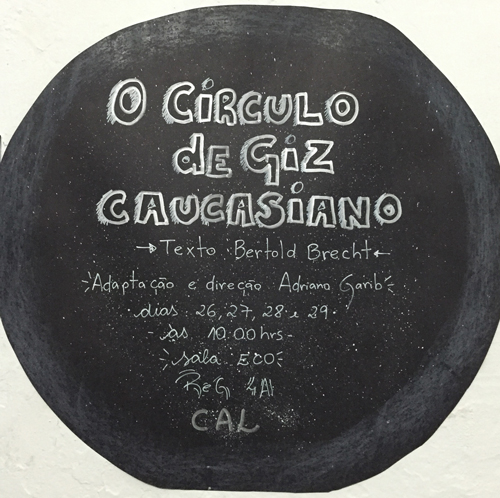 O CÍRCULO
de GiZ
CAUCASIANO
Texto: Bertold Brecht
Adaptação e direção Adriano Garib
dias: 26, 27, 28 e 29.
- às 10:00 hrs -
sala ECO
CAL